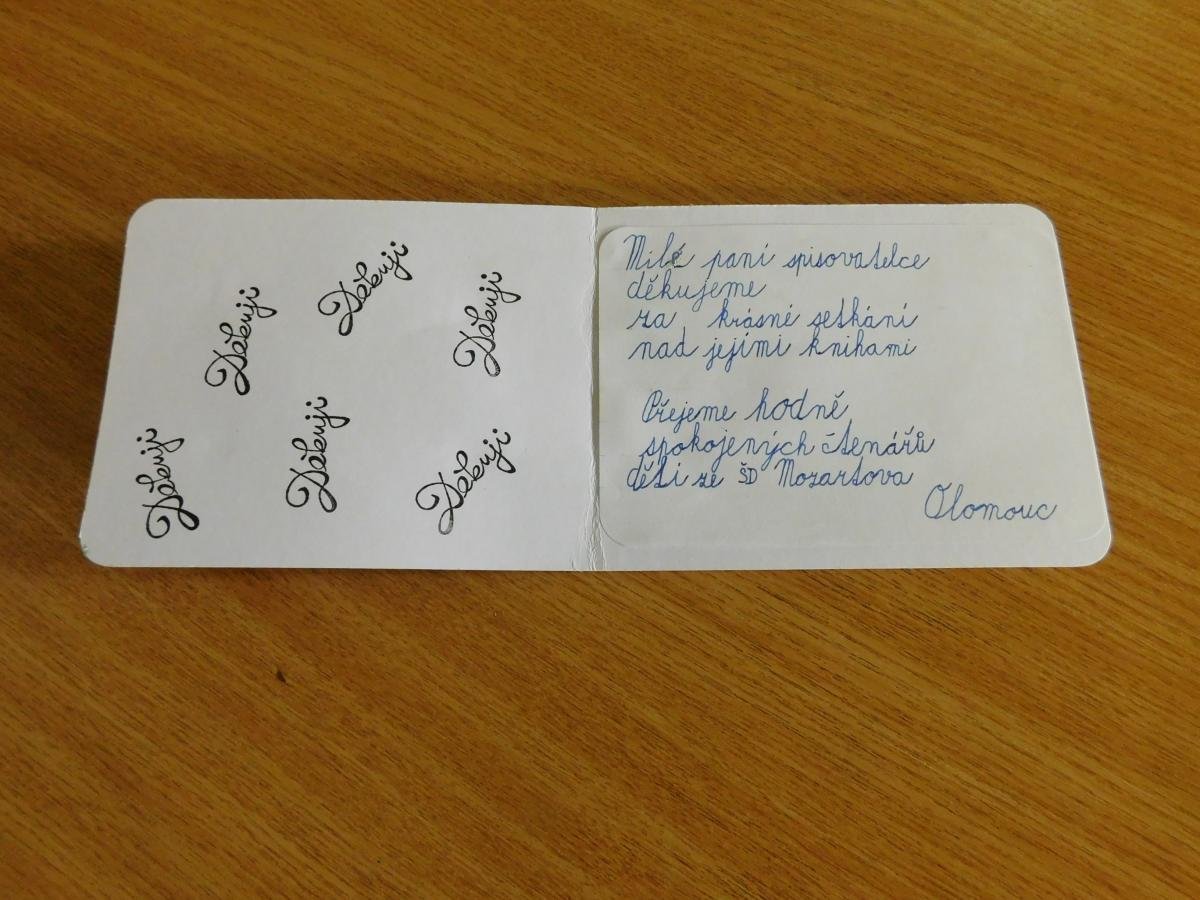 Děkuji
Děkuji
Děkuji
Děkuji
Děkuji
Děkuji
Milé paní spisovatelce
děkujeme
za krásné setkání
nad jejími knihami
Přejeme hodně
spokojených čtenářů
děti ze ŠD Mozartova
Olomouc